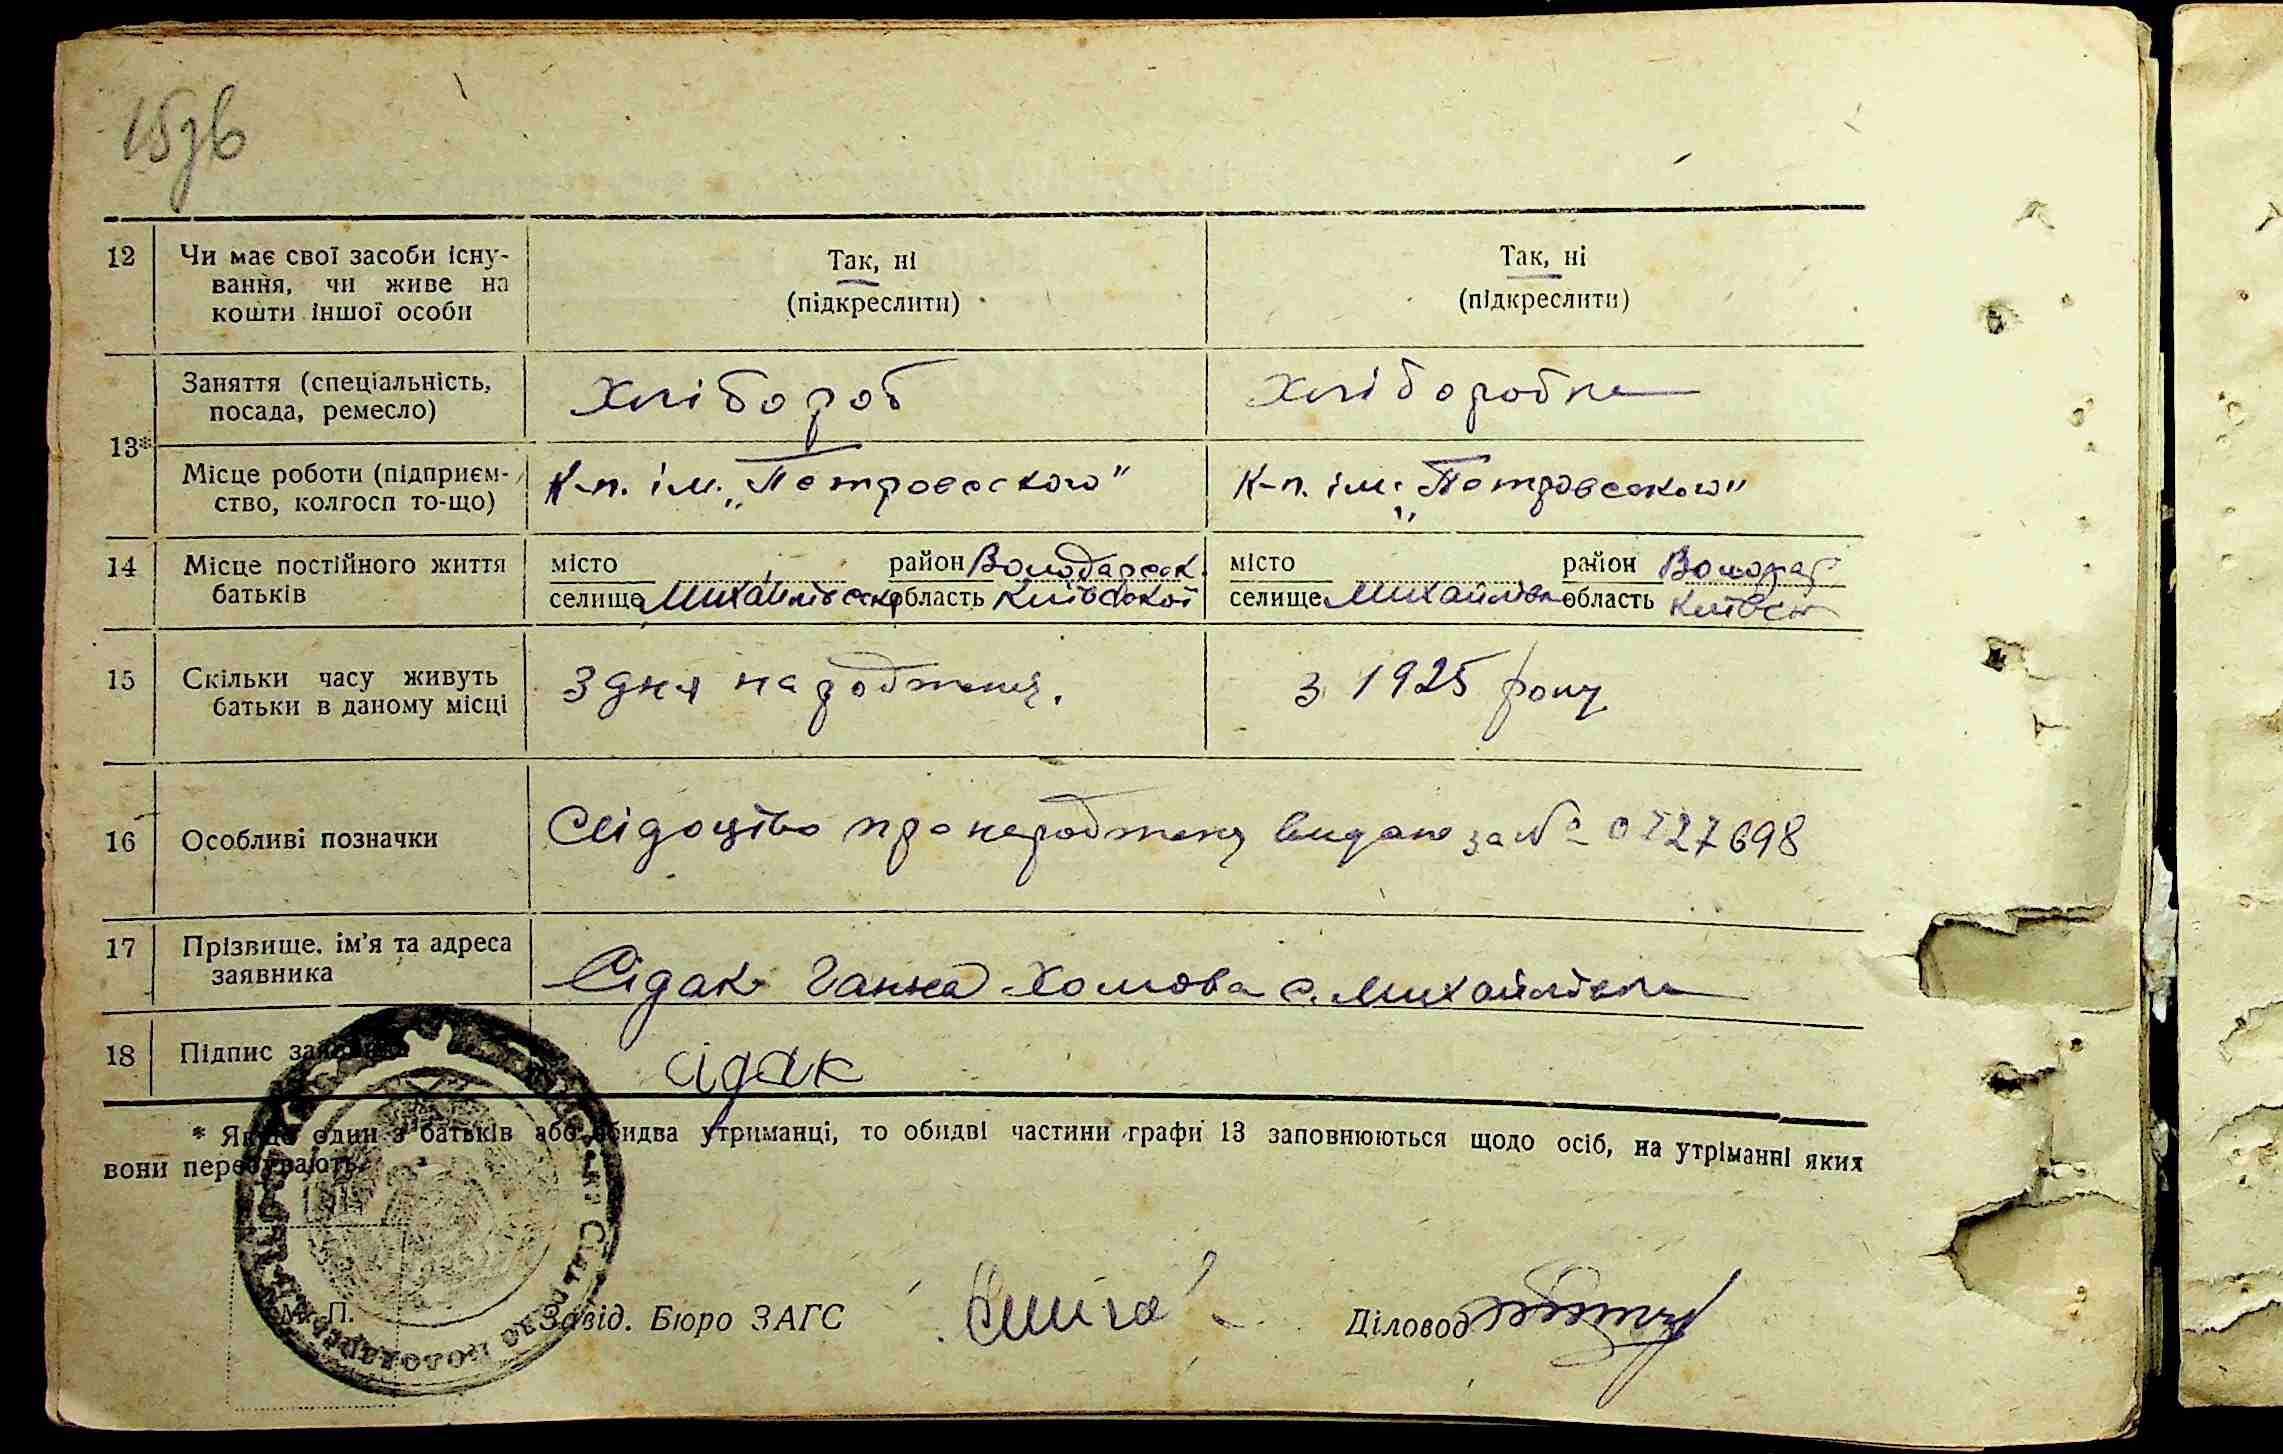 15зв
12 Чи має свої засоби існу-
вання, чи живе на
кошти іншої особи
Так, ні
(підкреслити)
Так, ні
(підкреслити)
13*
Заняття (спеціальність,
посада, ремесло)
Хлібороб
Хліборобка
Місце роботи (підприєм-
ство, колгосп то-що)
К-п. ім. „Петровського"
К-п. ім. „Петровського"
14 Місце постійного життя
батьків
місто район Володарськ.
селище Михайлівска область Київської
місто район Володар
селище Михайлівка область Київськ
15 Скільки часу живуть
батьки в даному місці
З дня народження.
з 1925 року
16 Особливі позначки
Свідоцтво про народження видано за №
17 Прізвище. ім'я та адреса
заявника
Сідак Ганна Хомова с. Михайлівка
18 Підпис
сідак
* Якщо один з батьків або обидва утриманці, то обидві частини графи 13 заповнюються щодо осіб, на утріманні яких
вони перебувають.
М. П.
Завід. Бюро ЗАГС
Діловод